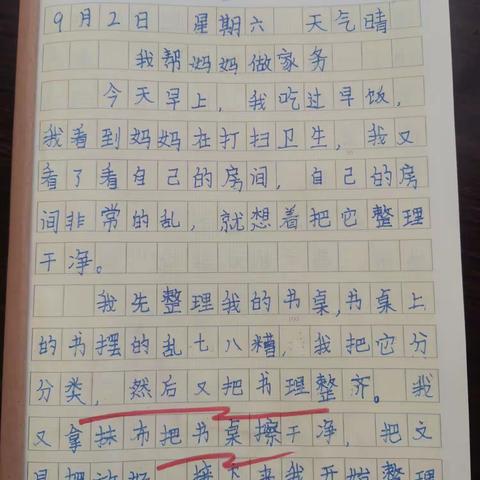 9月2日 星期六 天气晴
我帮妈妈做家务
今天早上,我吃过早饭,
我看到妈妈在打扫卫生,我又
看了看自己的房间,自己的房
间非常的乱,就想着把它整理
干净。
我先整理我的书桌,书桌上
的书摆的乱七八糟,我把它分
分类,然后又把书理整齐。我
又拿抹布把书桌擦干净,把文
具摆放好。接下来我开始整理